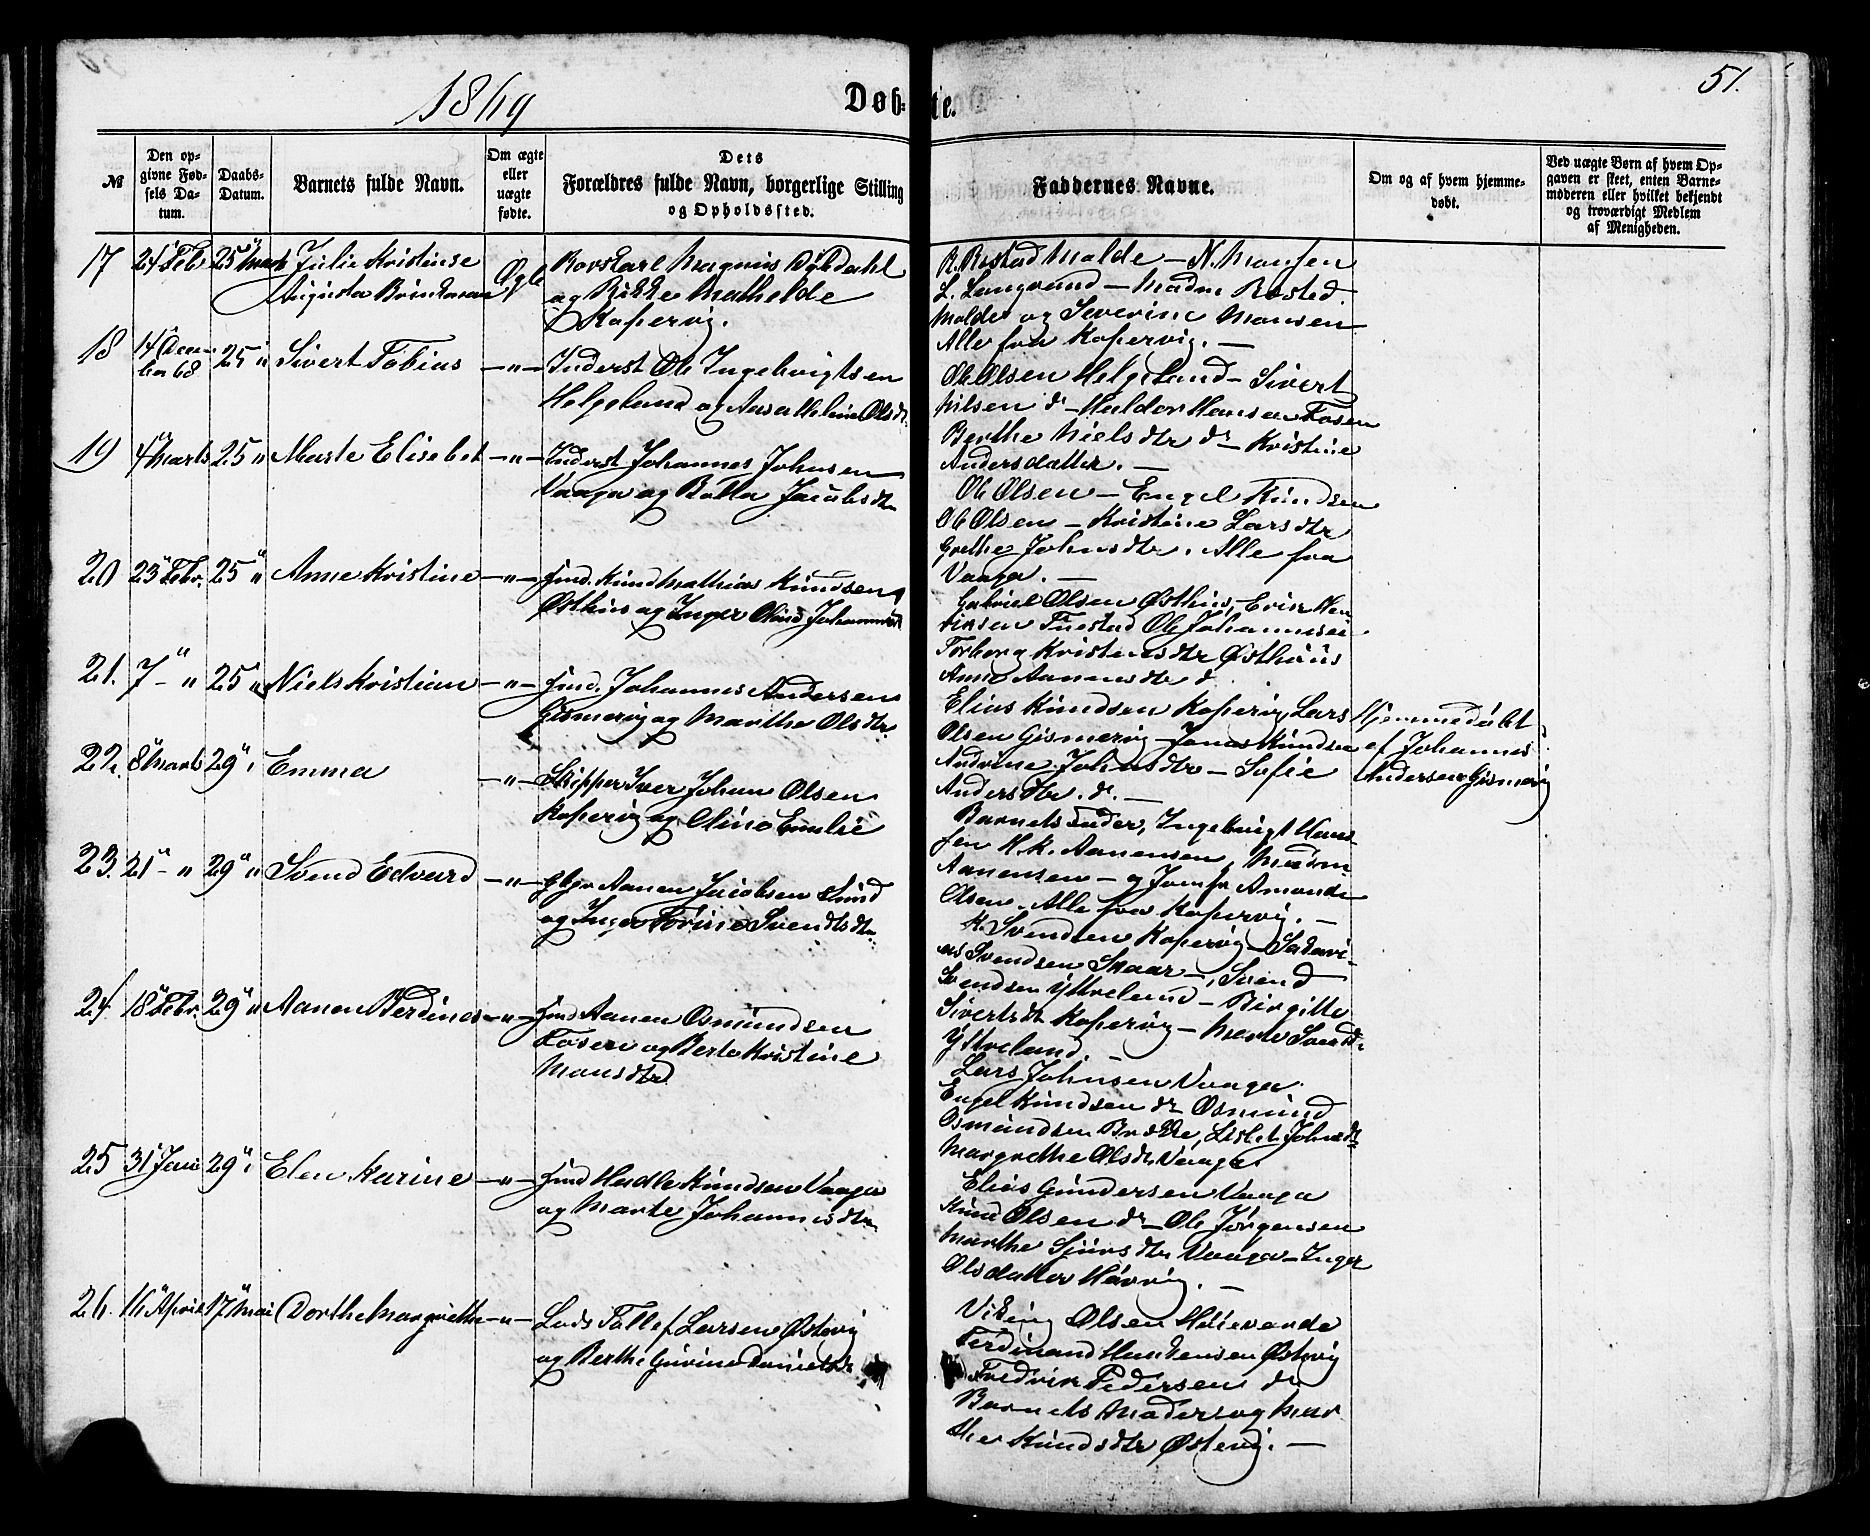 1869
Døb-
te.
51.
№
Den op-
givne Fød-
sels Da-
tum.
Daabs-
Datum.
Barnets fulde Navn.
Om ægte
eller
uægte
fødte.
Dets
Forældres fulde Navn, borgerlige Stilling
og Opholdssted.
Faddernes Navne.
Om og af hvem hjemme-
døbt.
Ved uægte Børn af hvem Op-
gaven er skeet, enten Barne-
moderen eller hvilket bekjendt
og troværdigt Medlem
af Menigheden.
17 24 Feb 25 Marts Julie Kristense
Augusta Brinkman
Ægte
Magnus Dybdahl
og Rikke Mathelde
Kopervig.
Malde – N. Monsen
L. Langsund – Madm Rosted
Malde og Severine Monsen
Alle fra Kopervig. –
18 14 Decem
ber 68 25 " Sivert Tobias – " –
Inderst Ole Ingebrigtsen
Helgeland og Olsdtr
Ole Olsen Helgeland – Sivert
Nilsen do – Halder Hansen Fosen
Berthe Nielsdtr do – Kristine
Andersdatter. –
19 4 Marts 25 " Marte Elisebet – " –
Inderst Johannes Johnsen
Vaaga og Jacobsdtr
Ole Olsen – Engel Knudsen
Ole Olsen – Kristine Larsdtr
Grethe Johnsdtr. Alle fra
Vaaga. –
20 23 Febr. 25 " Anne Kristine – " –
Gmd. Knud Mathias Knudsen
Østhus og Inger Oline
Gabriel Olsen Østhus,
Ole Johannesen
Torborg Kristensdtr Østhuus
Anne do
21. 7 – " 25 " Niels Kristian – " –
Gmd. Johannes Andersen
Gismervig og Marthe Olsdtr
Elias Knudsen Kopervig, Lars
Olsen Gismervig – Jonas Knudsen
Andrine Johnsdtr – Sofie
Andersdtr. do. –
Hjemmedøbt
af Johannes
Andersen Gismervig
22. 8 Marts 29 " Emma – " –
Skipper Iver Johan Olsen
Kopervig og Oline Emelie
Barnets Fader, Ingebrigt Han-
sen H. K. Aanensen, Madm
Aanensen – og Jomfr Amande
Olsen. Alle fra Kopervig. –
23. 21 – " 29 " Svend Edvard – " –
Aanen Jacobsen Sund
og Inger Torine Svendsdtr
K. Svendsen Kopervig –
Svendsen Skaar –, Svend
Svendsen Yttreland – Birgitte
Sivertsdt Kopervig – Marte Svendsd
Yttreland. –
24. 18 Febr. 29 " Aanen Berdines – " –
Gmd Aanen Osmundsen
Fosen og Berte Kristine
Monsdtr
Lars Johnsen Vaaga
Engel Knudsen do Osmund
Osmundsen Brekke, Johnsdt
Margrethe Olsdtr Vaaga
25 31 Jan 29 " Elen Karine – " –
Gmd Hadle Knudsen Vaaga
og Marte Johannesdtr
Elias Gundersen Vaaga
Knud Olsen do – Ole Jørgensen
Marthe Sjursdtr Vaaga – Inger
Olsdatter Høvig. –
26. 16 April 17 Mai Dorthe Margrethe – " –
Lods Tollef Larsen Østevig
og Berthe Gurine
Viking Olsen Høievarde
Ferdinand Østevig
Fredrik Pedersen do
Barnets Moder og Mar
the Knudsdtr Østevig. –